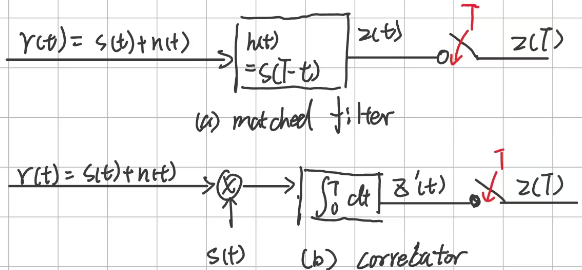 r(t) = s(t)+n(t)
h(t)
= s(T-t)
z(t)
T
z(T)
(a) matched filter
r(t) = s(t)+n(t)
×
∫₀ᵀ dt
z'(t)
T
z(T)
s(t)
(b) correlator